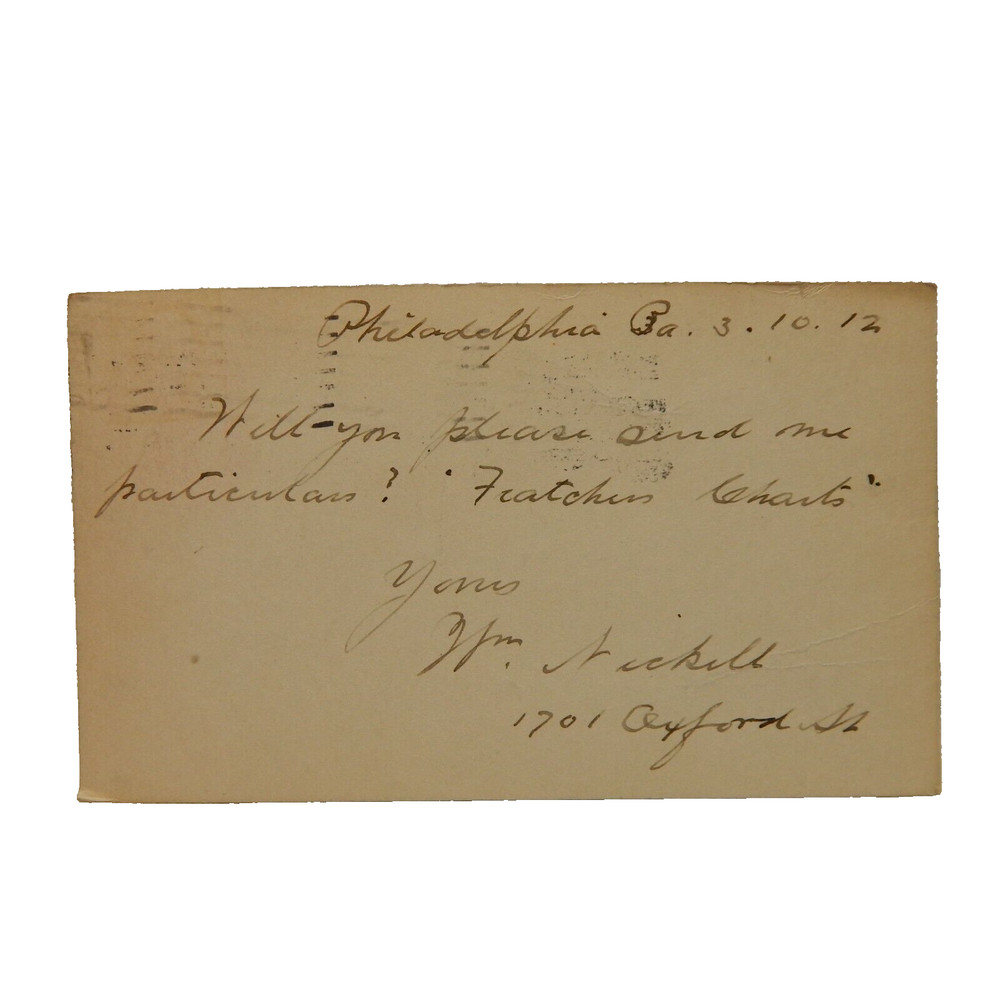 Philadelphia Pa. 3.10.12
Will you please send me
particulars? "Fratchers Charts".
Yours
Wm. Nickell
1701 Oxford St